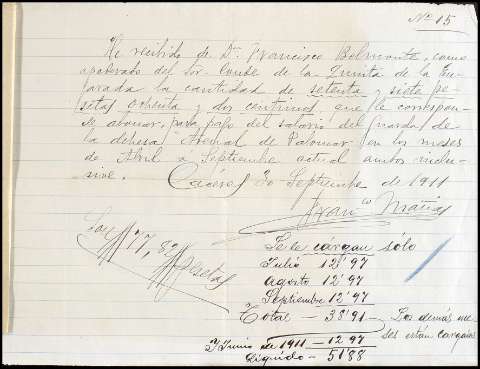 Nº 15
He recibido de Dn. Francisco Belmonte, como
apoderado del Sr. Conde de la Trinita de la En
jarada la cantidad de setenta y siete pe
setas ochenta y dos centimos que le correspon
de abonar, para pago del salario del guarda de
la dehesa Arenal de Palomar en los meses
de Abril a Septiembre actual ambos inclu-
sive.
Cáceres 30 Septiembre de 1911
Franco
Son 77,82 pesetas
Se le cargan sólo
Julio 12'97
agosto 12'97
Septiembre 12'97
Total — 38'91 — Los demás me
ses están cargados
Y Junio de 1911 — 12'97
Líquido — 51'88